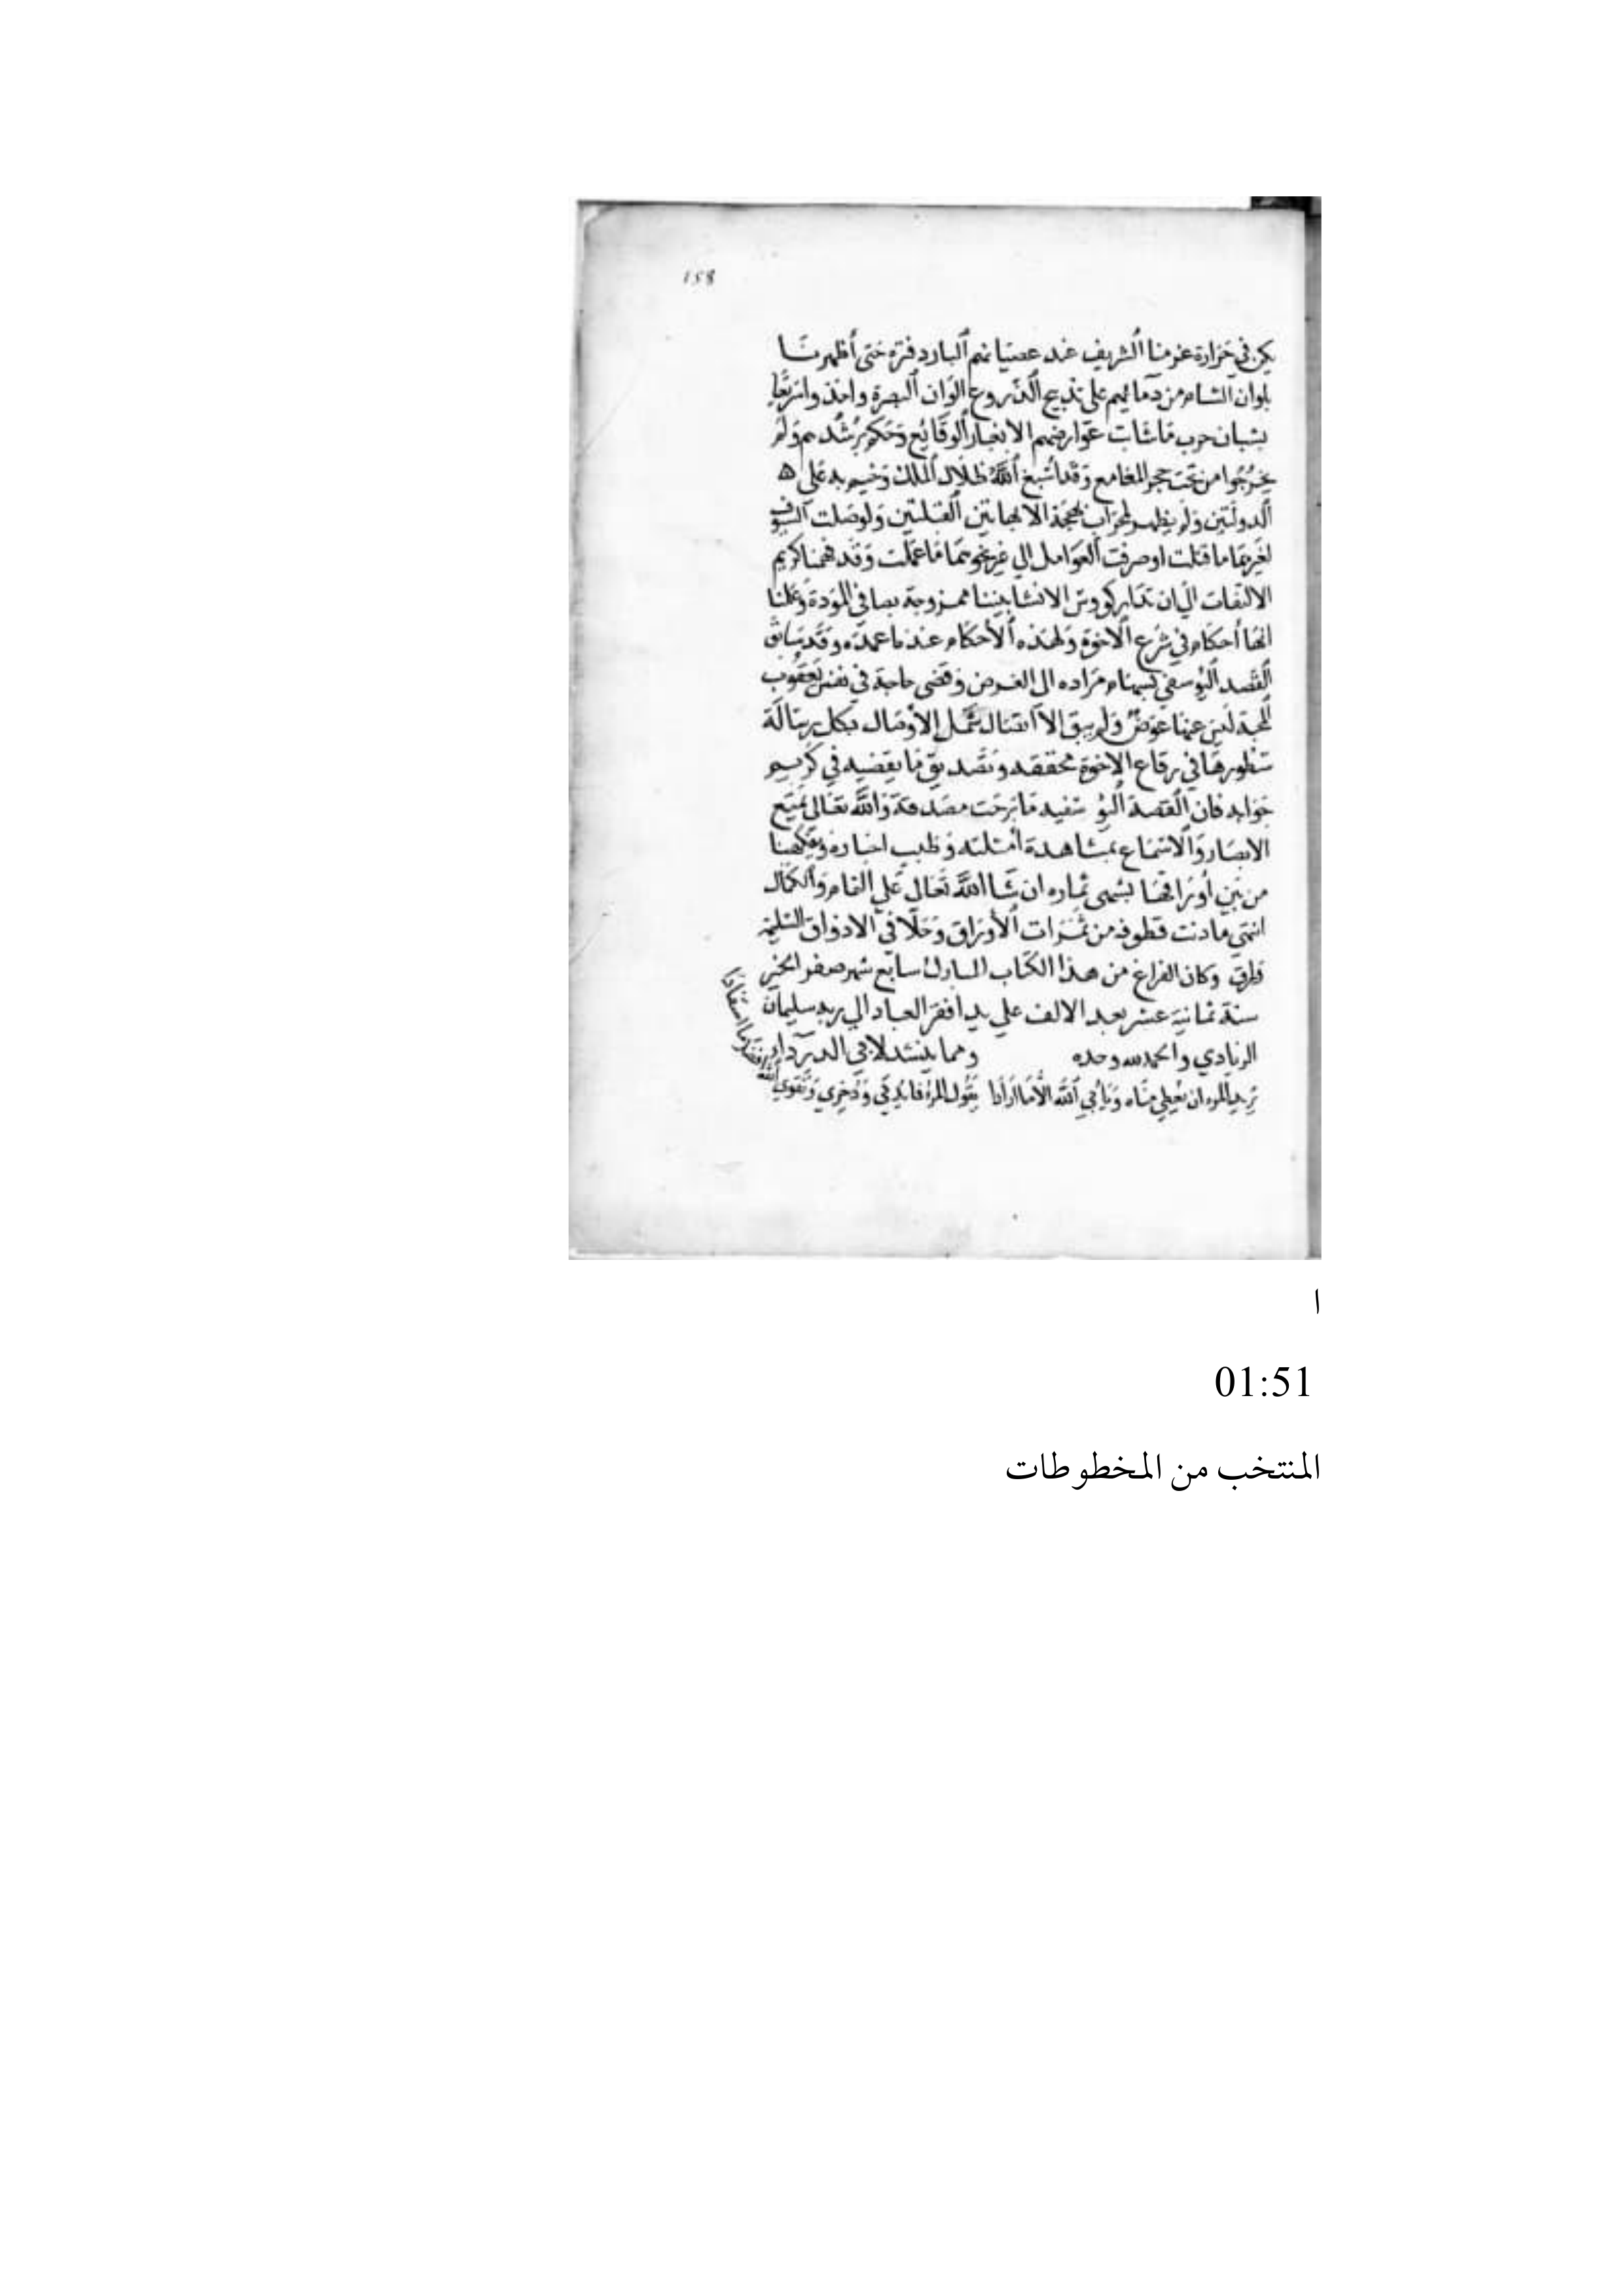 158
يكن في حرارة عزمنا الشريف عند عصيانهم البارد فترة حتى أظهرنا
بلوان الشام من دمائهم على تدبيج الدروع الوان البصرة واخذوا
بشبان حرب ماشات عوارضهم الا بغبار الوقائع وحكم برشدهم ولم
يخرجوا من تحت حجر المغامع وقد أسبغ الله ظلال الملك وخيم به على ه
الدولتين ولم يظهر لمحراب بهجة الا بهاتين القبلتين ولو صلت السيوف
لغيرهما ما قتلت او صرفت العوامل الي غير نحوهما ما عملت وقد فهمنا كريم
الالتفات الي ان تدار كووس الانشا بيننا ممزوجة بصافي المودة وعلمنا
انها أحكام في شرع الاخوة ولهذه الأحكام عند ما عمدة وقد سابق
القصد اليوسفي بسهام مراده الى الغرض وقضى حاجة في نفس يعقوب
المحبة ليس عنها عوض ولم يبق الا اتصال شمل الأوصال بكل رسالة
سطورها في رقاع الاخوة محققه وتصديق ما يقضيه في كريم
جوابه فان القصة اليوسفيه ما برحت مصدقة والله تعالى يمتع
الابصار والاسماع بمشاهدة أمثلته وطيب اخباره ويفكهنا
من بين أوراقها بشهي ثماره ان شا الله تعالى على التمام والكمال
انتهى ما دنت قطوفه من ثمرات الأوراق وحلا في الاذواق السليمة
وكان الفراغ من هذا الكتاب المبارك سابع شهر صفر الخير
سنة ثمانية عشر بعد الالف علي يد افقر العباد الي ربه سليمان
الزيادي والحمد لله وحده ومما ينشد لابي الدرداء
يريد المرء ان يعطي مناه ويأبي الله الا ما ارادا يقول المرء فائدتي وذخري وتقوي
الله افضل ما استفادا
ا
01:51
المنتخب من المخطوطات